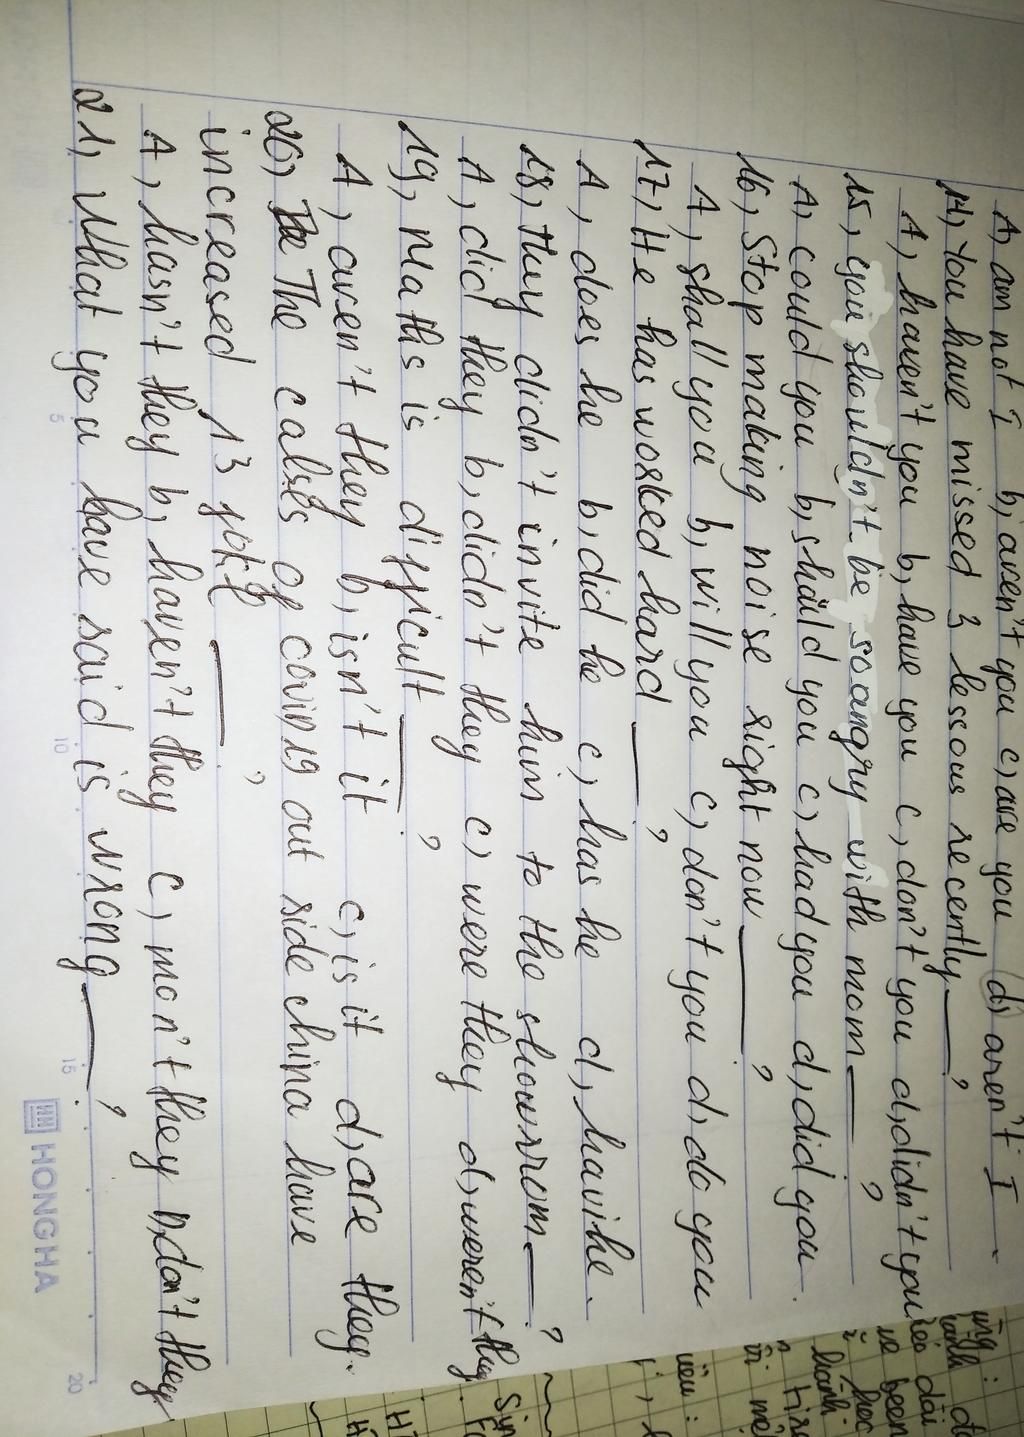 A, am not I b, aren't you c, are you d, aren't I
14, You have missed 3 lessons recently ?
A, haven't you b, have you c, don't you d, didn't you
15, you shouldn't be so angry with mom ?
A, could you b, should you c, had you d, did you.
16, Stop making noise right now ?
A, shall you b, will you c, don't you d, do you
17, He has worked hard ?
A, does he b, did he c, has he d,
18, they didn't invite him to the ?
A, did they b, didn't they c, were they d, weren't they
19, Maths is difficult ?
A, aren't they b, isn't it c, is it d, are they.
20, The of covid 19 out side china have
increased ?
A, hasn't they b, haven't they c, they don't they
21, What you have said is wrong ?
HONGHA
5
10
15
20